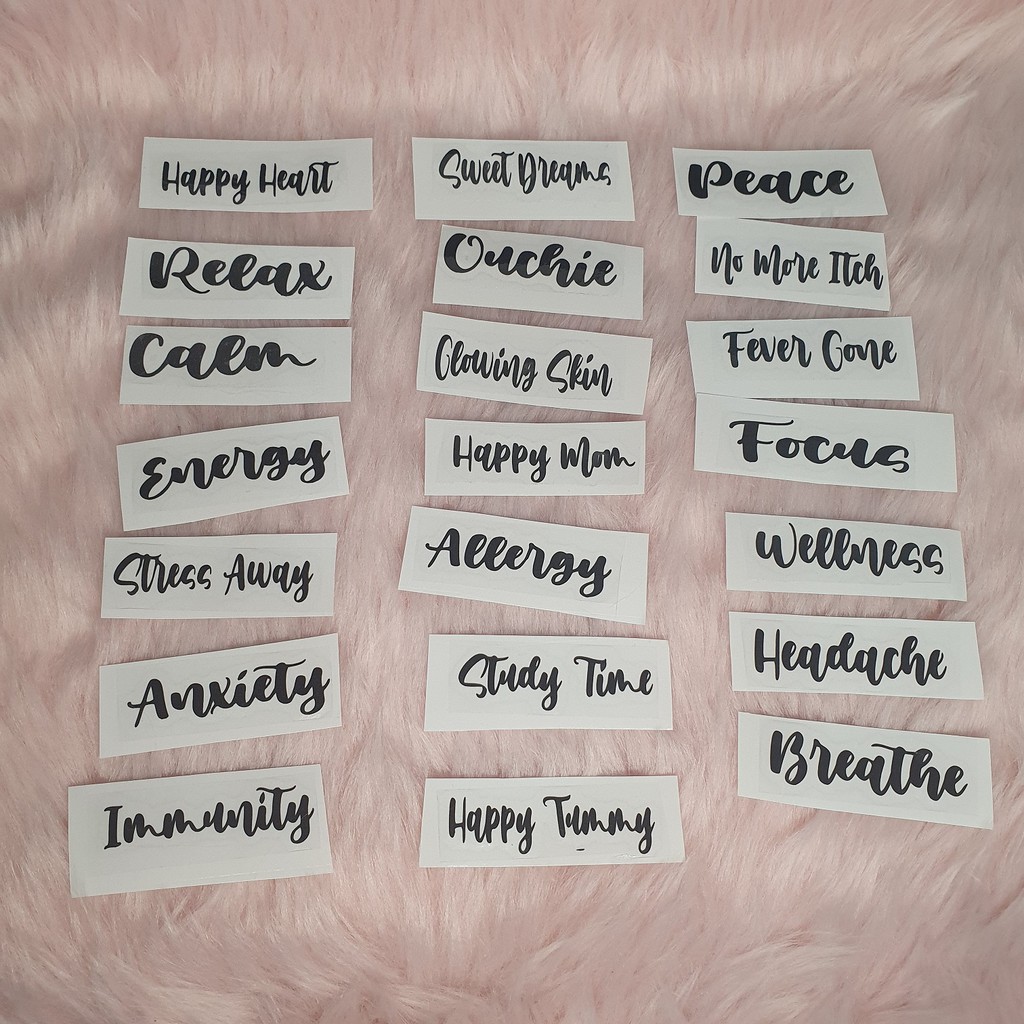 Happy Heart
Relax
Calm
Energy
Stress Away
Anxiety
Immunity
Sweet Dreams
Ouchie
Glowing Skin
Happy Mom
Allergy
Study Time
Happy Tummy
Peace
No More Itch
Fever Gone
Focus
Wellness
Headache
Breathe